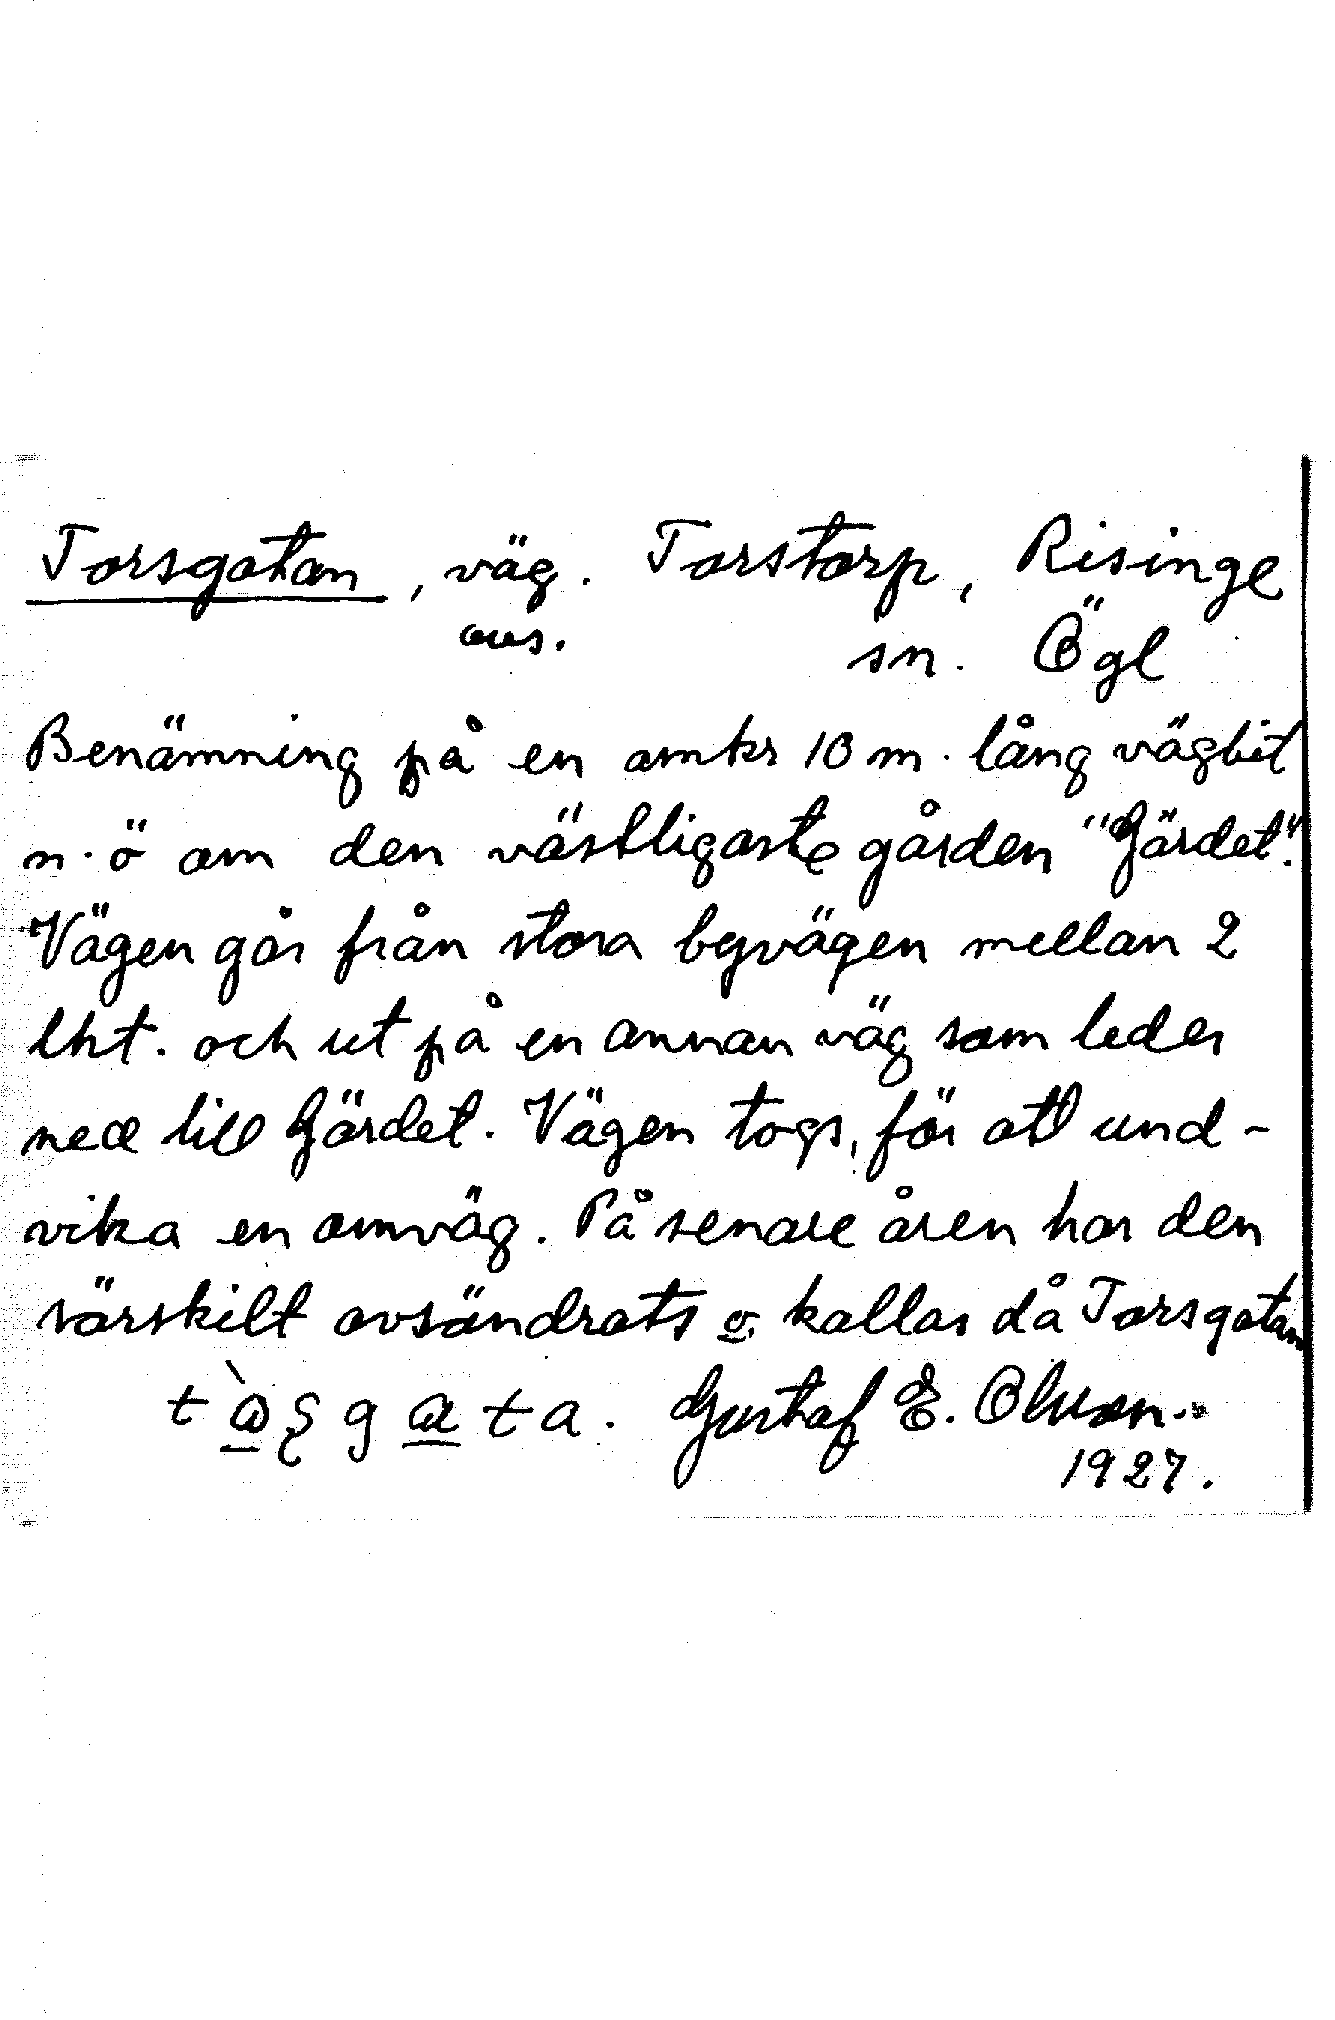 Torsgatan, väg. Torstorp, Risinge
aus. sn. Ögl
Benämning på en omkr 10 m. lång vägbit
n.ö om den västligaste gården "Gärdet".
Vägen går från stora byvägen mellan 2
lht. och ut på en annan väg som leder
ned till Gärdet. Vägen togs, för att und-
vika en omväg. På senare åren har den
särskilt avsöndrats o. kallas då Torsgatan
Gustaf E. Olsson.
1927.